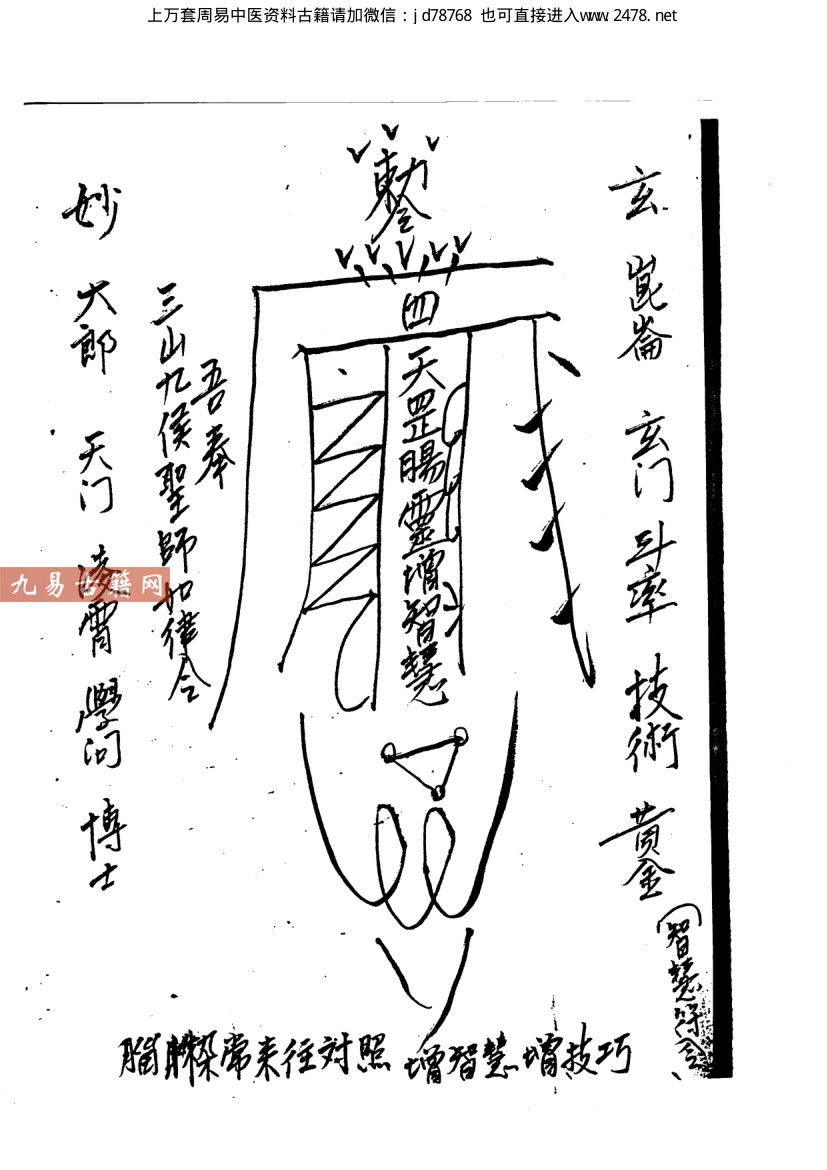 上万套周易中医资料古籍请加微信：jd78768 也可直接进入www.2478.net
玄 崑崙 玄门 斗率 技術 黄金
(智慧符令
勅令
四
天罡腸靈增智慧
吾奉
三山九侯聖師如律令
妙 大郎 天门 凌霄 學问 博士
常来往対照 增智慧增技巧
九易古籍网